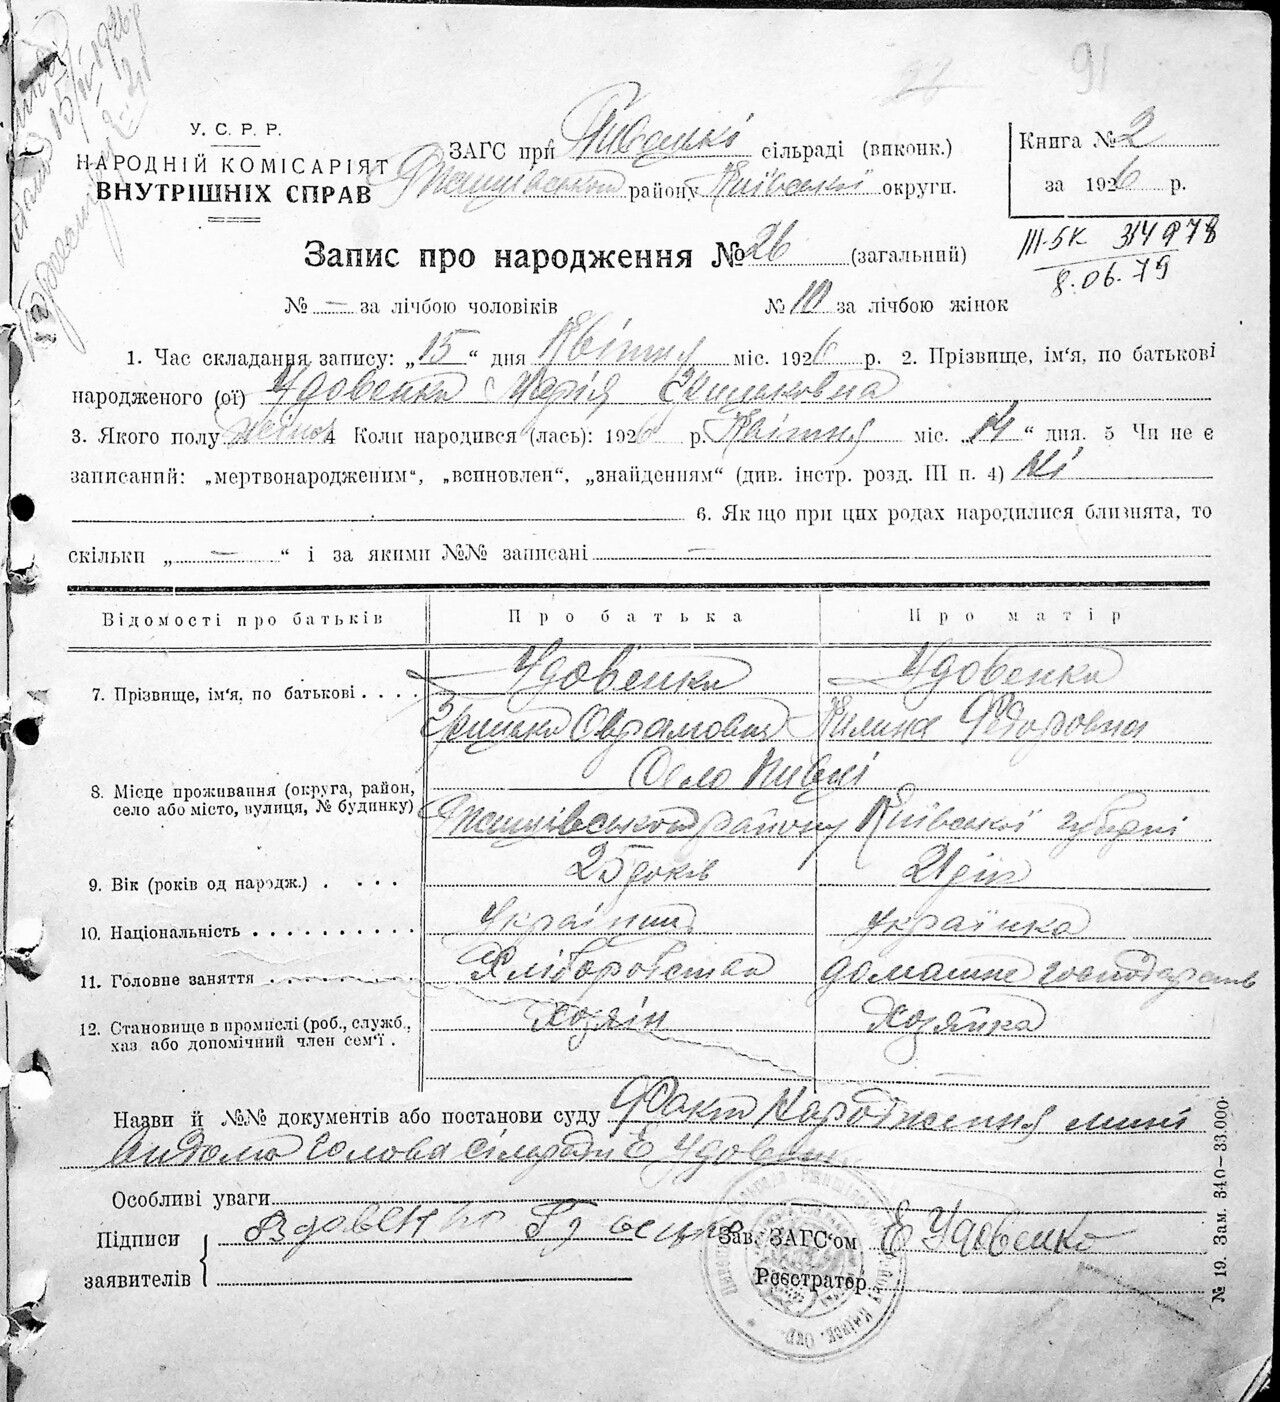 91
У. С. Р. Р.
НАРОДНІЙ КОМІСАРІЯТ
ВНУТРІШНІХ СПРАВ
ЗАГС при сільраді (виконк.)
району Київської округи.
Книга № 2
за 1926 р.
III-БК 314978
8.06.79
Запис про народження № 26 (загальний)
№ — за лічбою чоловіків № 10 за лічбою жінок
1. Час складання запису: „15“ дня Квітня міс. 1926 р. 2. Прізвище, ім‘я, по батькові
народженого (ої) Удовенко Марія Грицьковна
3. Якого полу жіноч 4 Коли народився (лась): 1926 р. Квітня міс. „14“ дня. 5 Чи не є
записаний: „мертвонародженим“, „всиновлен“, „знайденням“ (див. інстр. розд. III п. 4) Ні
6. Як що при цих родах народилися близнята, то
скільки „ — “ і за якими №№ записані —
Відомості про батьків Про батька Про матір
7. Прізвище, ім‘я, по батькові . . . . Удовенко Удовенко
Грицько Оврамович Килина Федоровна
8. Місце проживання (округа, район, село або місто, вулиця, № будинку) Село Пивці
району Київської губерні
9. Вік (років од народж.) . . . . 25 років 21 рік
10. Національність . . . . . . . . . . Українець Українка
11. Головне заняття . . . . . . . . . Хліборобство домашнє господарств
12. Становище в промислі (роб., служб., хаз або допомічний член сем‘ї . Хозяїн Хозяйка
Назви й №№ документів або постанови суду Факт Народження мині
відомо Голова сільради Е Удовенко
Особливі уваги
Підписи
заявителів
Удовенко
Зав. ЗАГС‘ом Е Удовенко
Реєстратор
№ 19. Зам. 340—33.000.